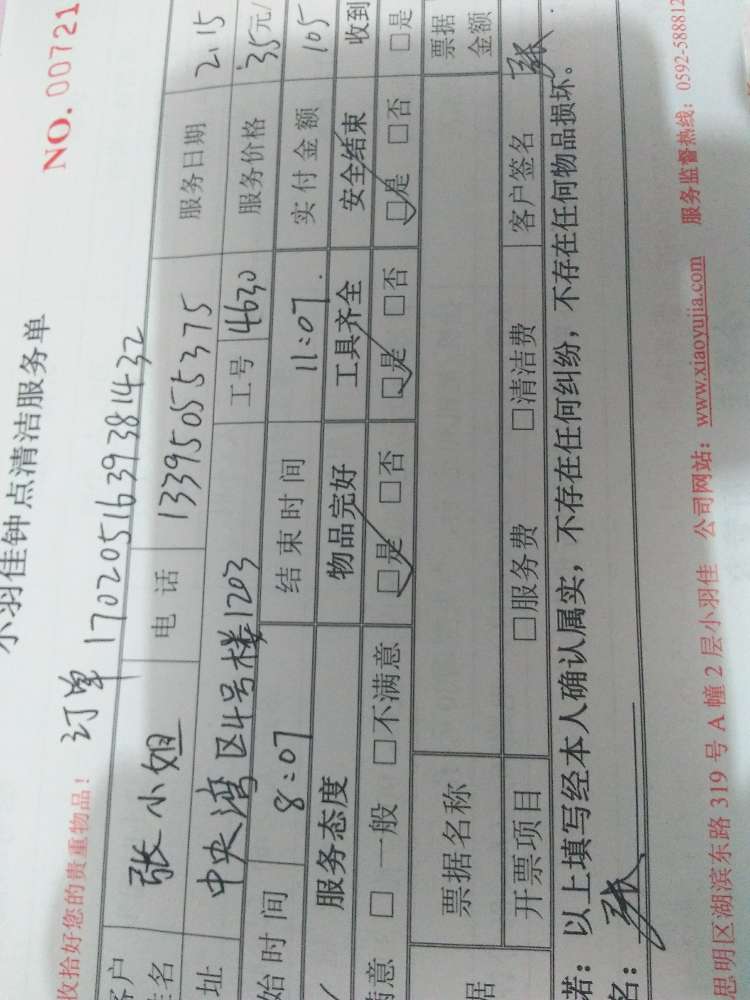 小羽佳钟点清洁服务单
NO.00721
收拾好您的贵重物品！ 订单 1702051639381432
客户姓名 张小姐 电话 13395055375 服务日期 2.15
址 中央湾区4号楼1203 工号 4630 服务价格 35元/
始时间 8:07 结束时间 11:07. 实付金额 105
服务态度 物品完好 工具齐全 安全结束 收到
满意 □一般 □不满意 □是 □否 □是 □否 □是 □否 □是
据 票据名称 票据金额
开票项目 □服务费 □清洁费 客户签名 张
诺：以上填写经本人确认属实，不存在任何纠纷，不存在任何物品损坏。
名：张
思明区湖滨东路 319 号 A 幢 2 层小羽佳 公司网站：www.xiaoyujia.com 服务监督热线：0592-588812